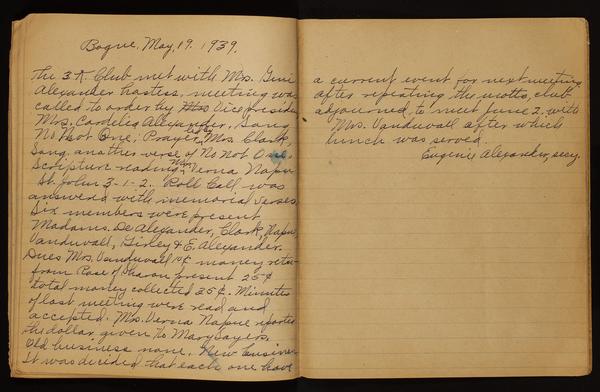 Bogue, May, 19. 1939.
The 3 K. Club met with Mrs.
Alexander hostess, meeting was
called to order by Mrs Vice preside
Mrs. Cordelia Alexander, Song
No, Not One, Prayer, led by Mrs. Clark,
Song. another verse of No Not One.
Scripture reading Mrs. Verna Napue
St. John 3-1-2. Roll Call was
answered with memorial verses.
Six members were present
Madams. De Alexander, Clark, Napue,
Vanduvall, Girley & E. Alexander.
Dues Mrs. Vanduvall 10¢ money retu-
from Rose of Sharon present 25¢
total money collected 35¢. Minutes
of last meeting were read and
accepted. Mrs. Verna Napue reported
the dollar given to Mary Sayers.
Old business none. New business
It was decided that each one have
a current event for next meeting
after repeating the motto, club
adjourned, to meet June 2. with
Mrs. Vanduvall after which
lunch was served.
Eugenie Alexander, secy.